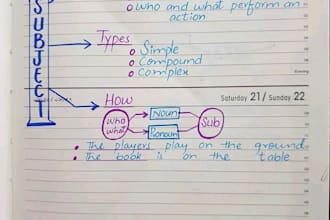 SUBJECT
who and what perform an
action
Types
Simple
Compound
Complex
Saturday 21 / Sunday 22
How
who
what
Noun
Pronoun
Sub
The players play on the ground
The book is on the table